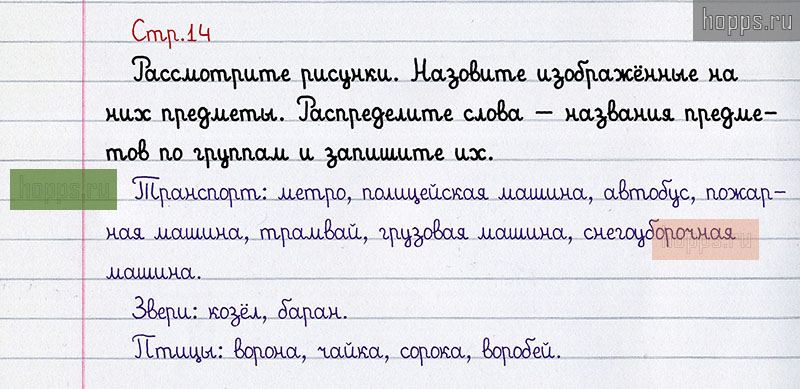 hopps.ru
Стр.14
Рассмотрите рисунки. Назовите изображённые на
них предметы. Распределите слова — названия предме-
тов по группам и запишите их.
hopps.ru
Транспорт: метро, полицейская машина, автобус, пожар-
ная машина, трамвай, грузовая машина, снегоуборочная
hopps.ru
машина.
Звери: козёл, баран.
Птицы: ворона, чайка, сорока, воробей.